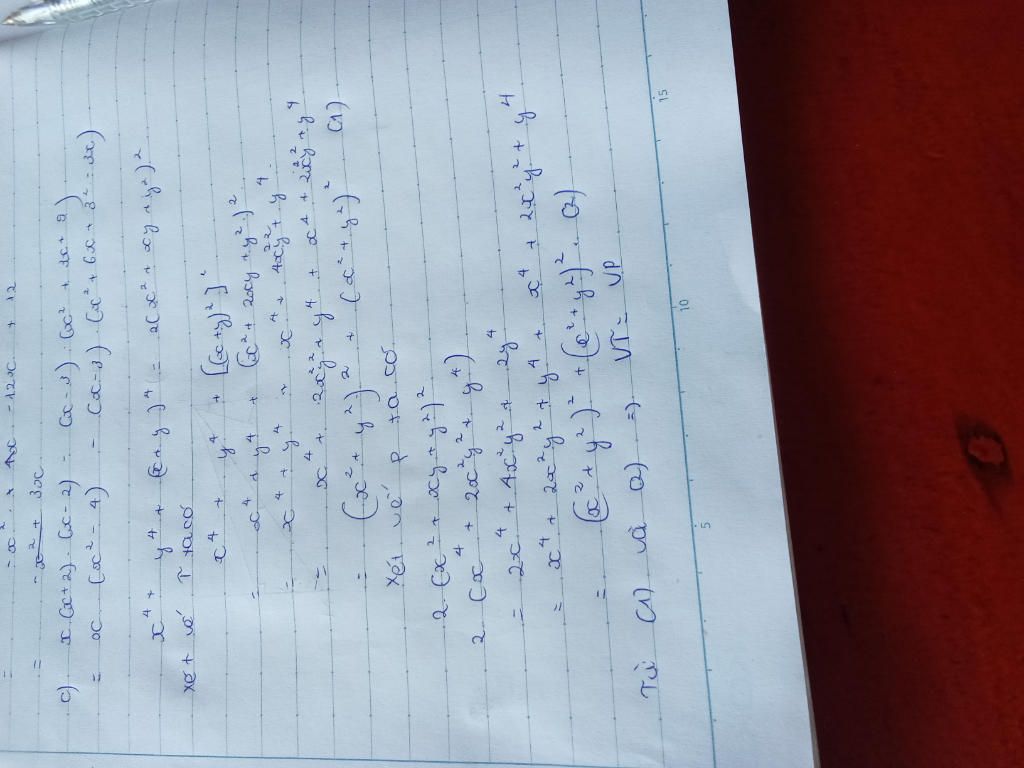 = - x² + 4x - 12x + 12
= - x² + 3x
c) x(x+2).(x-2) - (x-3).(x² + 3x + 9)
= x (x² - 4) - (x-3) (x² + 6x + 3² - 3x)
x⁴ + y⁴ + (x+y)⁴ = 2(x² + xy + y²)²
xét vế T ta có
x⁴ + y⁴ + [(x+y)²]²
= x⁴ + y⁴ + (x² + 2xy + y²)²
= x⁴ + y⁴ + x⁴ + 4x²y² + y⁴
= x⁴ + 2x²y² + y⁴ + x⁴ + 2x²y² + y⁴
= (x² + y²)² + (x² + y²)² (1)
xét vế P ta có
2 (x² + xy + y²)²
2 (x⁴ + 2x²y² + y⁴)
= 2x⁴ + 4x²y² + 2y⁴
= x⁴ + 2x²y² + y⁴ + x⁴ + 2x²y² + y⁴
= (x² + y²)² + (x² + y²)². (2)
Từ (1) và (2) => VT = VP
5 10 15